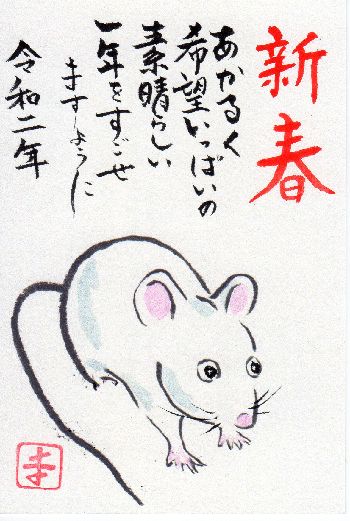 新春
あかるく
希望いっぱいの
素晴らしい
一年をすごせ
ますように
令和二年